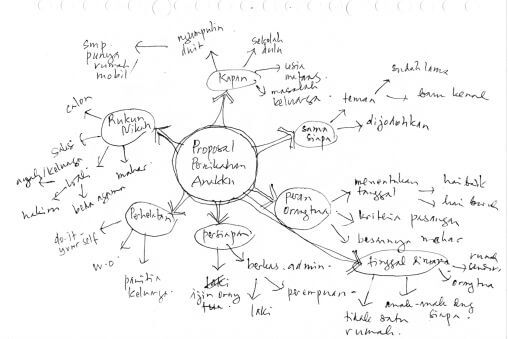 smp.
punya
rumah
mobil
ngumpulin
duit
sekolah
dulu
Kapan
usia
matang
masalah
keluarga.
sudah lama
teman
baru kenal
dijodohkan
sama
siapa
calon
Rukun
Nikah
saksi
ayah/keluarga
wali
hakim
beda agama
mahar
Proposal
Pernikahan
Anakku
peran
Orangtua
menentukan
tanggal
hai baik
hai buruk
kriteria pasangan
besarnya mahar
Perhelatan
do-it-
yourself
w.o.
panitia
keluarga.
persiapan
ijin orang
tua
berkas admin.
laki
perempuan
tinggal dimana
rumah
orangtua
anak-anak dng
siapa.
tidak satu
rumah.